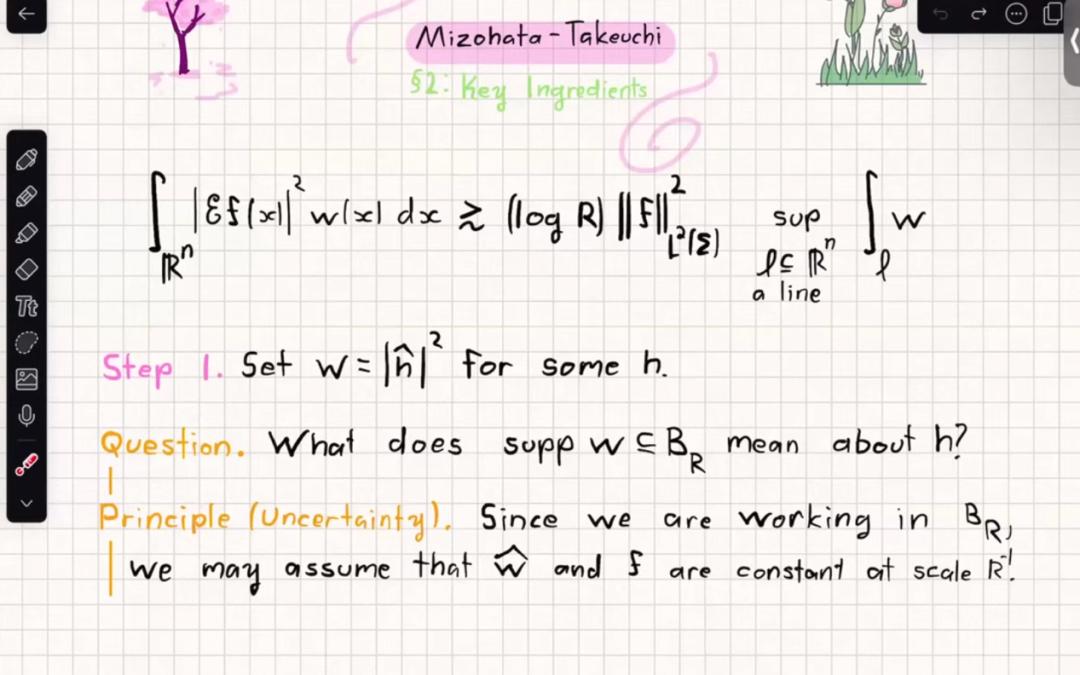 Mizohata-Takeuchi
§2: Key Ingredients
∫_{ℝⁿ} |Ef(x)|² w(x) dx ≳ (log R) ‖f‖²_{L²(Σ)} sup_{ℓ⊆ℝⁿ a line} ∫_ℓ w
Step 1. Set w = |ĥ|² for some h.
Question. What does supp w ⊆ B_R mean about h?
Principle (Uncertainty). Since we are working in B_R,
we may assume that ŵ and f are constant at scale R⁻¹.
Tt